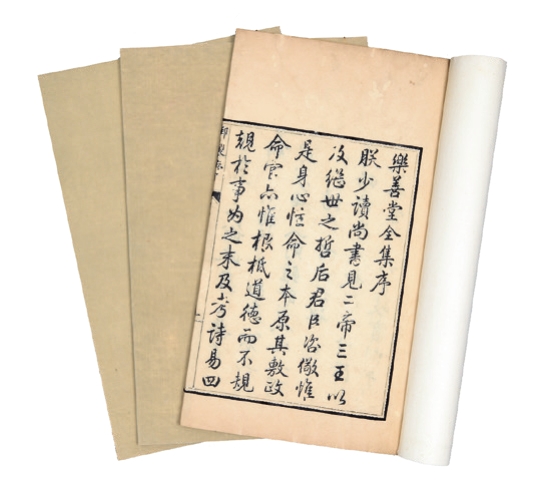 樂善堂全集序
朕少讀尚書見二帝三王以
次繼世之哲后君臣咨儆惟
是身心性命之本原其敷政
命官亦惟根柢道德而不規
規於事為之末及考詩易四